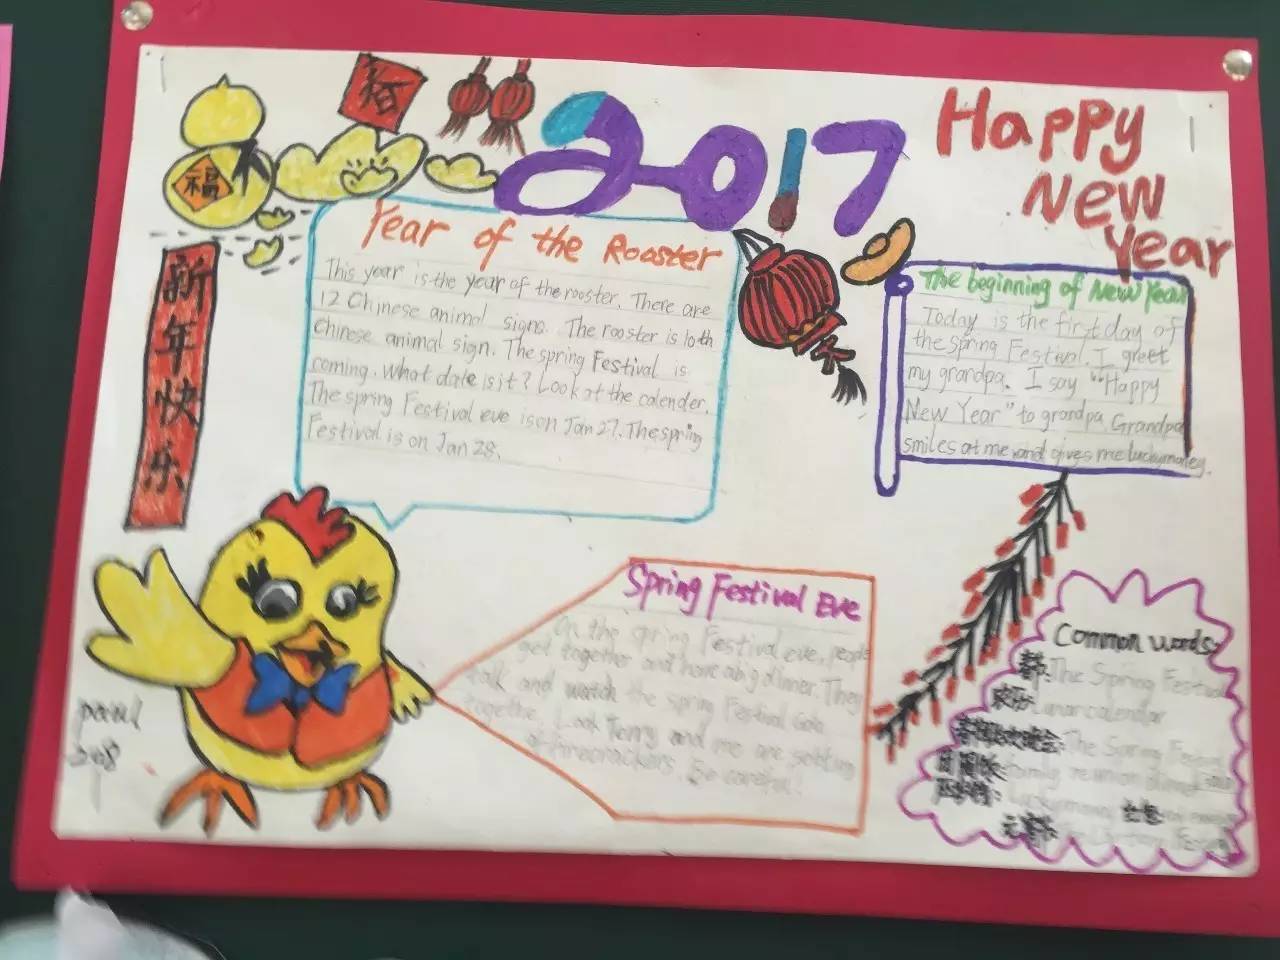 春
福
2017
Happy
New
Year
新年快乐
Year of the Rooster
This year is the year of the rooster. There are
12 Chinese animal signs. The rooster is 10th
Chinese animal sign. The spring Festival is
coming. What date is it? Look at the calender.
The spring Festival eve is on Jan 27. The spring
Festival is on Jan 28.
The beginning of New Year
Today is the first day of
the spring Festival. I greet
my grandpa. I say "Happy
New Year" to grandpa. Grandpa
smiles at me and gives me luckymoney.
Spring Festival Eve
On the spring Festival eve, people
get together and have a big dinner. They
talk and watch the spring Festival Gala
together. Look Tenny and me are setting
off firecrackers. Be careful!
Common words:
春节: The Spring Festival
农历: Lunar calendar
春节联欢晚会: The Spring Festival
团圆饭: family reunion dinner
压岁钱: Luckymoney
元宵节: The Lantern Festival
paul